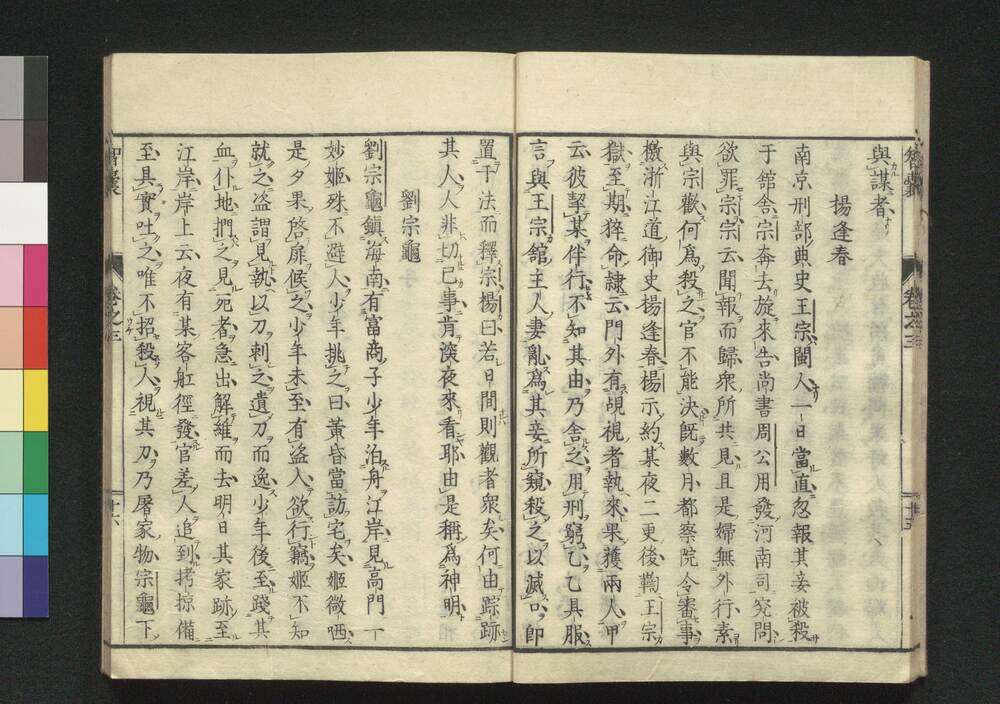 智囊
卷之三
十五
與謀者
楊逢春
南京刑部典史王宗閩人一日當直忽報其妾被殺
于館舍宗奔去旋來告尚書周公用發河南司究問
欲罪宗宗云聞報而歸衆所共見且是婦無外行素
與宗歡何爲殺之官不能決既數月都察院令審事
檄浙江道御史楊逢春楊示約某夜二更後鞫王宗
獄至期猝命隷云門外有覘視者執來果獲兩人甲
云彼挈某伴行不知其由乃舍之用刑窮乙乙具服
言與王宗館主人妻亂爲其妾所窺殺之以滅口即
置于法而釋宗楊曰若日間則觀者衆矣何由踪跡
其人人非切已事肯深夜來看耶由是稱爲神明
劉宗龜
劉宗龜鎮海南有富商子少年泊舟江岸見高門一
妙姬殊不避人少年挑之曰黃昏當訪宅矣姬微哂
是夕果啓扉候之少年未至有盜人欲行竊姬不知
就之盜謂見執以刀刺之遺刀而逸少年後至踐其
血仆地捫之見死者急出解維而去明日其家跡至
江岸岸上云夜有某客舡徑發官差人追到拷掠備
至具實吐之唯不招殺人視其刀乃屠家物宗龜下
智囊
卷之三
十六